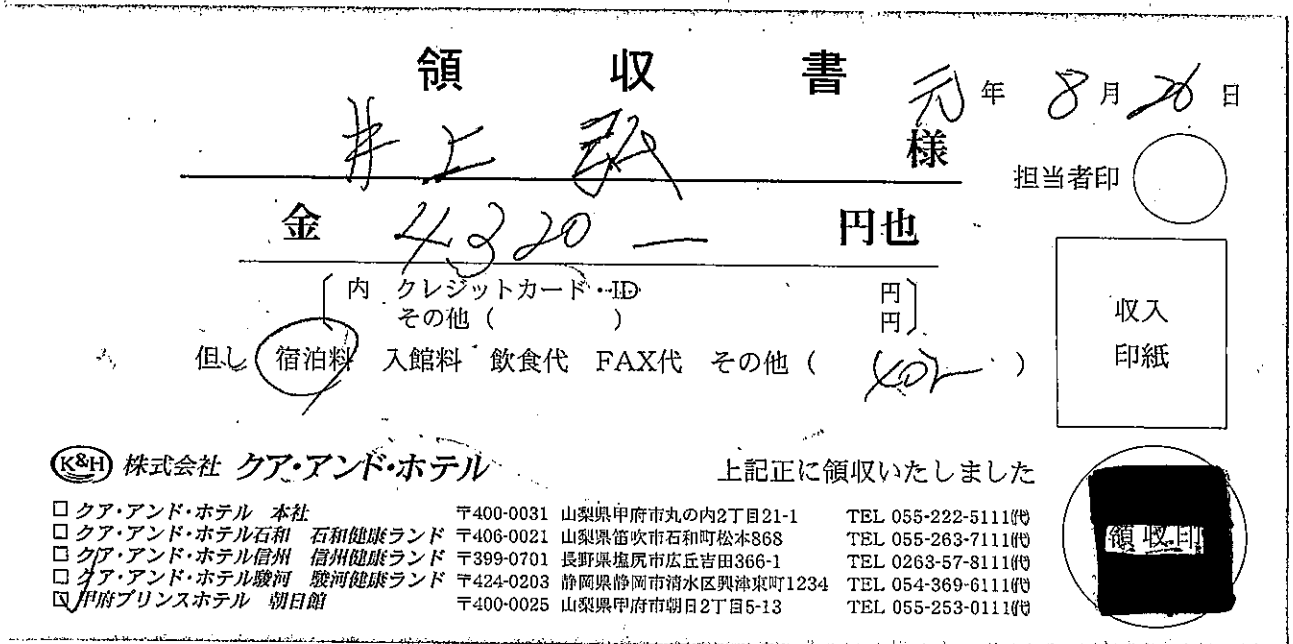 領収書
元年 8月26日
井上 弘 様
担当者印
金 4320 ー 円也
内 クレジットカード・ID 円
その他 ( ) 円
収入
印紙
但し 宿泊料 入館料 飲食代 FAX代 その他 ( 402 )
K&H 株式会社 クア・アンド・ホテル 上記正に領収いたしました
□ クア・アンド・ホテル 本社 〒400-0031 山梨県甲府市丸の内2丁目21-1 TEL 055-222-5111㈹
□ クア・アンド・ホテル石和 石和健康ランド 〒406-0021 山梨県笛吹市石和町松本868 TEL 055-263-7111㈹
□ クア・アンド・ホテル信州 信州健康ランド 〒399-0701 長野県塩尻市広丘吉田366-1 TEL 0263-57-8111㈹
□ クア・アンド・ホテル駿河 駿河健康ランド 〒424-0203 静岡県静岡市清水区興津東町1234 TEL 054-369-6111㈹
☑ 甲府プリンスホテル 朝日館 〒400-0025 山梨県甲府市朝日2丁目5-13 TEL 055-253-0111㈹
領収印